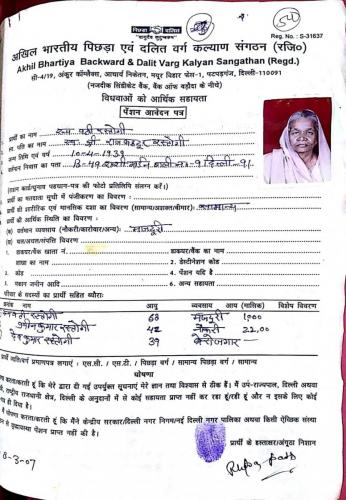 पिछड़ा दलित
Reg. No.: S-31637
अखिल भारतीय पिछड़ा एवं दलित वर्ग कल्याण संगठन (रजि०)
Akhil Bhartiya Backward & Dalit Varg Kalyan Sangathan (Regd.)
सी-4/19, अंकुर कॉम्प्लैक्स, आचार्य निकेतन, मयूर विहार फेस-1, पटपड़गंज, दिल्ली-110091
(नजदीक सिंडीकेट बैंक, बैंक ऑफ बड़ौदा के नीचे)
विधवाओं को आर्थिक सहायता
पेंशन आवेदन पत्र
प्रार्थी का नाम
स्व. पति का नाम
जन्म तिथि एवं वर्ष 10-4-1939
वर्तमान निवास का पता
(राशन कार्ड/चुनाव पहचान-पत्र की फोटो प्रतिलिपि संलग्न करें।)
प्रार्थी का मतदाता सूची में पंजीकरण का विवरण :
प्रार्थी की शारीरिक एवं मानसिक दशा का विवरण (सामान्य/अशक्त/बीमार): सामान्य
प्रार्थी की आर्थिक स्थिति का विवरण :
(क) वर्तमान व्यवसाय (नौकरी/कारोबार/अन्य): मजदूरी
(ख) चल/अचल/संपत्ति विवरण
1. डाकघर/बैंक खाता नं. डाकघर/बैंक का नाम :
शाखा का नाम : 2. डेस्टीनेशन कोड
3. कोड 4. पेंशन यदि है
5. मकान जमीन आदि 6. अन्य सहायता
परिवार के सदस्यों का प्रार्थी सहित ब्यौरा:
क्रमांक नाम आयु व्यवसाय आय (मासिक) विशेष विवरण
रस्तोगी 68 मजदूरी
कुमार रस्तोगी 42 नौकरी
कुमार रस्तोगी 39 बेरोजगार
प्रार्थी जाति/वर्ग प्रमाणपत्र लगाएं : एस.सी. / एस.टी. / पिछड़ा वर्ग / सामान्य पिछड़ा वर्ग / सामान्य
घोषणा
करता/करती हूं कि मेरे द्वारा दी गई उपर्युक्त सूचनाएं मेरे ज्ञान तथा विश्वास से ठीक हैं। मैं उप-राज्यपाल, दिल्ली अथवा
राष्ट्रीय राजधानी क्षेत्र, दिल्ली के अनुदानों में से कोई सहायता प्राप्त नहीं कर रहा हूं/रही हूं और न इसके लिए कोई
ही दिया है।
घोषणा करता/करती हूं कि मैंने केन्द्रीय सरकार/दिल्ली नगर निगम/नई दिल्ली नगर पालिका अथवा किसी ऐच्छिक संस्था
वृद्धावस्था पेंशन प्राप्त नहीं की है।
प्रार्थी के हस्ताक्षर/अंगूठा निशान
8-3-07